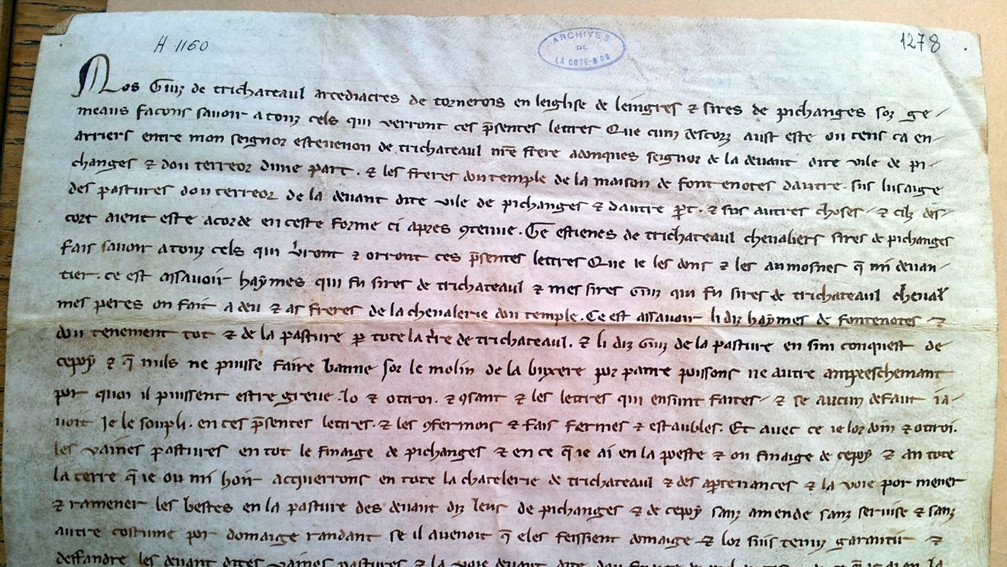 H 1160
ARCHIVES
DE
LA COTE-D'OR
1278
Nos Guiz de trichateaul arcediacres de tornerois en leiglise de leingres & sires de pichanges soz ge
meaus facons savoir a touz cels qui verront ces p̄sentes lettres Que cum descorz aust este ou tens ca en
arriers entre mon seignor estevenon de trichateaul nr̄e frere adonques seignor de la devant dite vile de pi
changes & dou terreor dune part . & les freres dou temple de la maison de fontenotes dautre . sus lusaige
des pastures dou terreor de la devant dite vile de pichanges & dautre p̄t . & sus autres choses . & cilz des
cort aient este acorde en ceste forme ci apres 9tenue . Ge estienes de trichateaul chevaliers sires de pichanges
fais savoir a touz cels qui v̄ront & orront ces p̄sentes lettres Que ie les dons & les aumosnes q̄ mi devan
tier . ce est assavoir haymes qui fu sires de trichateaul & mes sires Guiz qui fu sires de trichateaul
mes peres on fait a deu & as freres de la chevalerie dou temple . Ce est assavoir li diz haymes de fontenotes &
dou tenement tot & de la pasture p̄ tote la t̄re de trichateaul . & li diz Guiz de la pasture en sun conquest de
cepoy & q̄ nuls ne puisse faire banne sor le molin de la por panre poissons ne autre ampeeschemant
por quoi il puissent estre greve . lo & otroi . & & les lettres qui ensunt faites & se aucun defaut ia
voit Je le soupli . en ces p̄sentes lettres . & les 9fermois & fais fermes & estaubles . Et avec ce ie lor doin & otroi .
les vaines pastures en tot le finaige de pichanges & en ce q̄ ie ai en la poeste & ou finaige de cepoy & an tote
la terre q̄ ie ou mi hoir acquerrons en tote la chatelerie de trichateaul & des apartenances & la voie por mener
& ramener les bestes en la pasture des devant diz leus de pichanges & de cepoy sanz amende sanz servise & sanz
autre costume por domaige randant se il avenoit q̄ eles feissient domaige & lor suis tenuz garantir &
deffandre les devant dites vaines pastures & la voie devant dite